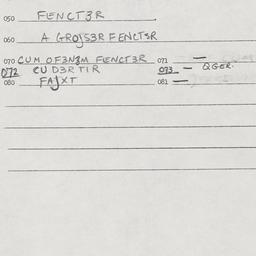 050 FENCT3R
060 A GROJS3R FENCT3R
070 CUM OF3N3M FENCT3R 071 —
072 CU D3RTIR 073 — QGER.
080 FAJXT 081 —